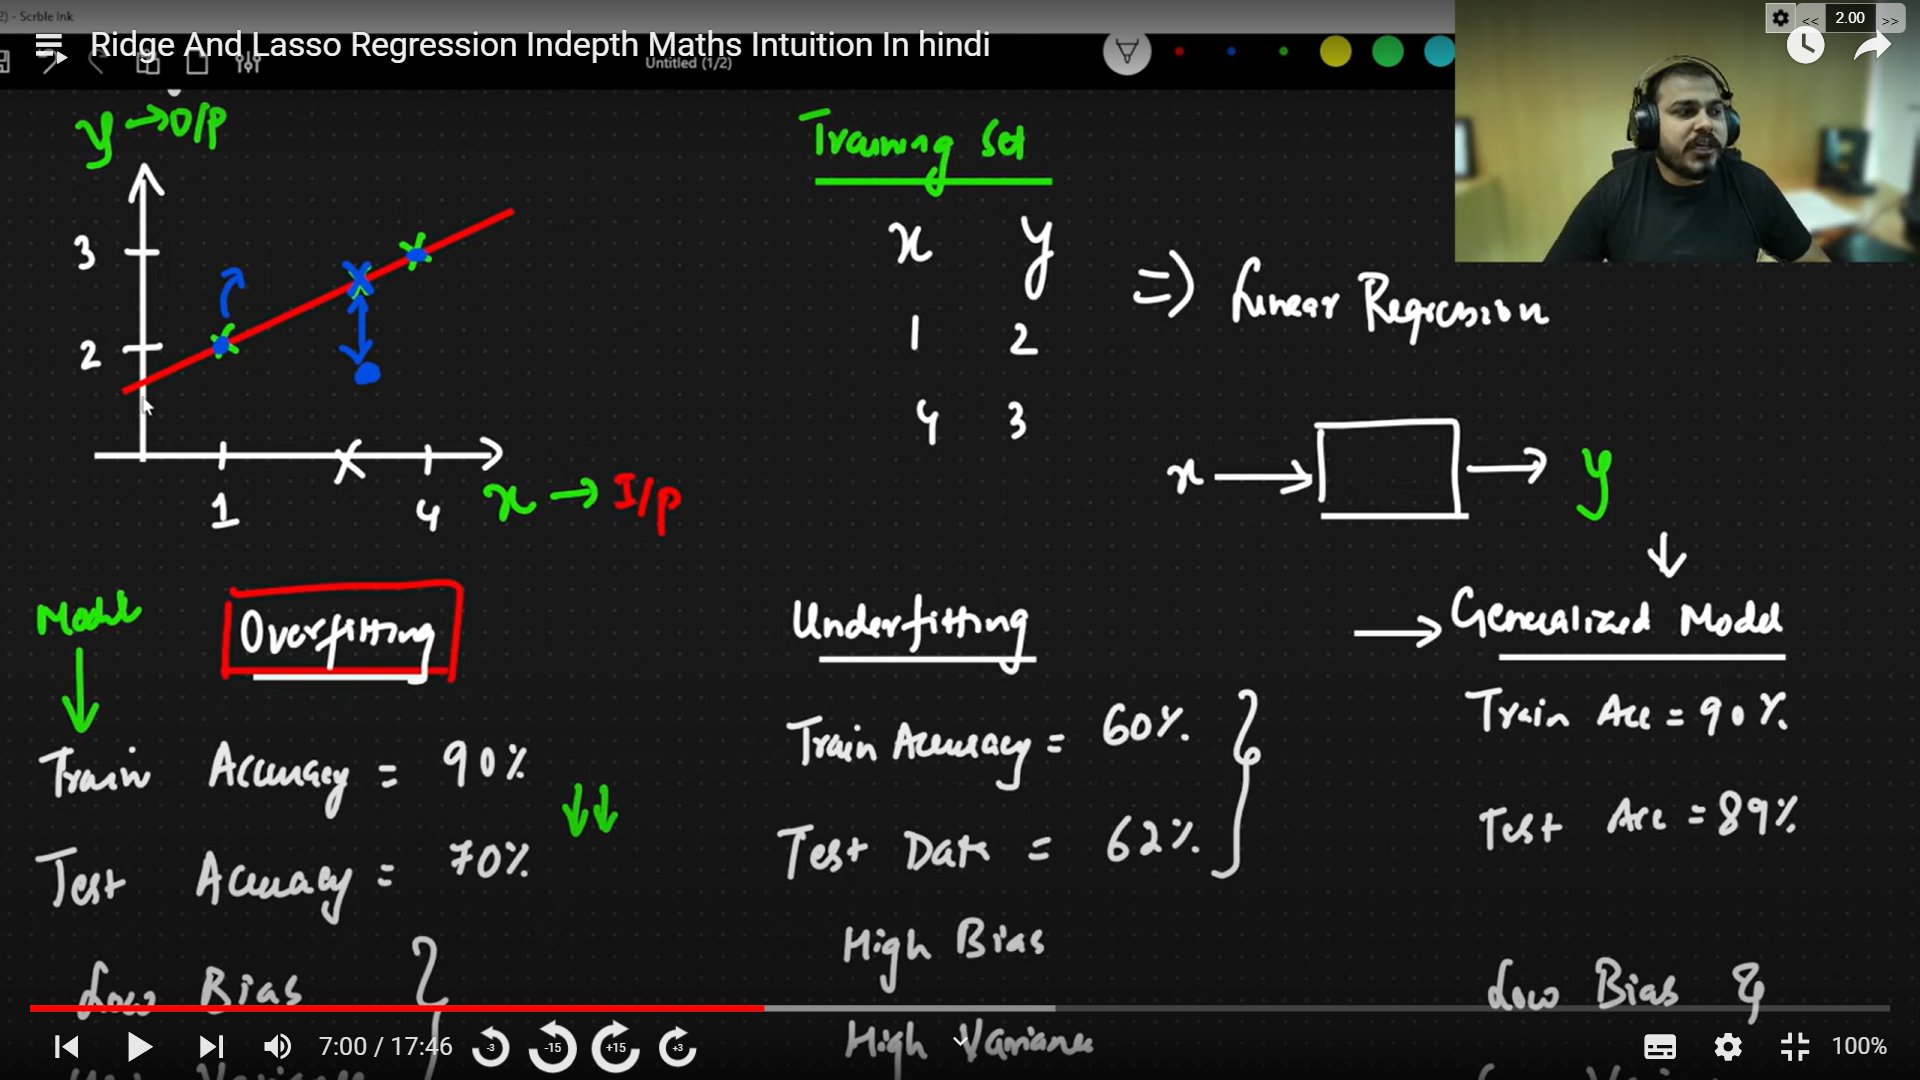 2) - Scrble Ink
Ridge And Lasso Regression Indepth Maths Intuition In hindi
Untitled (1/2)
<< 2.00 >>
y → O/P
3
2
1
4
x → I/p
Training Set
x y
1 2
4 3
=) Linear Regression
x → → y
Model
Overfitting
Train Accuracy = 90%
Test Accuracy = 70%
Low Bias
Underfitting
Train Accuracy = 60%.
Test Data = 62%.
High Bias
High Variance
→ Generalized Model
Train Acc = 90%.
Test Acc = 89%
Low Bias &
7:00 / 17:46
-3
-15
+15
+3
100%